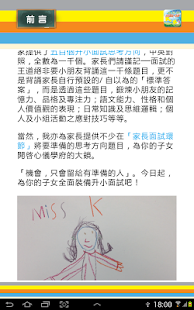 前言
家提供了五百個升小面試思考方向，中英對
照，全數為一千個。家長們請謹記一面試的
王道絕非要小朋友背誦這一千條題目，更不
是背誦家長自行預設的/自以為的「標準答
案」，而是透過這些題目，鍛煉小朋友的記
憶力、品格及專注力；語文能力、性格和個
人價值觀的表現；日常知識及思維邏輯；個
人及小組活動之應對技巧等等。
當然，我亦為家長提供不少在「家長面試環
節」將要準備的思考方向題目，為你的子女
開啓心儀學府的大鎖。
「機會，只會留給有準備的人」。今日起，
為你的子女全面裝備升小面試吧！
MISS K
18:00